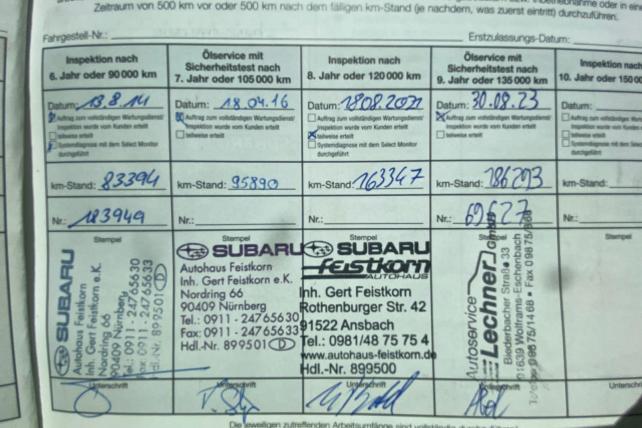 Zeitraum von 500 km vor oder 500 km nach dem fälligen km-Stand (je nachdem, was zuerst eintritt) durchzuführen.
Fahrgestell-Nr.:
Erstzulassungs-Datum:
Inspektion nach
6. Jahr oder 90 000 km
Datum: 13.8.14
Auftrag zum vollständigen Wartungsdienst/
Inspektion wurde vom Kunden erteilt
teilweise erteilt
Systemdiagnose mit dem Select Monitor
durchgeführt
km-Stand: 83394
Nr.: 183949
Stempel
SUBARU
Autohaus Feistkorn
Inh. Gert Feistkorn e.K.
Nordring 66
90409 Nürnberg
Tel.: 0911 - 24765630
Fax: 0911 - 24765633
Hdl.-Nr. 899501 D
Unterschrift
Ölservice mit
Sicherheitstest nach
7. Jahr oder 105 000 km
Datum: 18.04.16
Auftrag zum vollständigen Wartungsdienst/
Inspektion wurde vom Kunden erteilt
teilweise erteilt
km-Stand: 95890
Nr.:
Stempel
SUBARU
Autohaus Feistkorn
Inh. Gert Feistkorn e.K.
Nordring 66
90409 Nürnberg
Tel.: 0911 - 24765630
Fax: 0911 - 24765633
Hdl.-Nr. 899501 D
Unterschrift
Inspektion nach
8. Jahr oder 120 000 km
Datum: 18.08.2021
Auftrag zum vollständigen Wartungsdienst/
Inspektion wurde vom Kunden erteilt
teilweise erteilt
Systemdiagnose mit dem Select Monitor
durchgeführt
km-Stand: 163347
Nr.:
Stempel
SUBARU
feistkorn
AUTOHAUS
Inh. Gert Feistkorn
Rothenburger Str. 42
91522 Ansbach
Tel.: 0981/48 75 75 4
www.autohaus-feistkorn.de
Hdl.-Nr. 899500
Unterschrift
Ölservice mit
Sicherheitstest nach
9. Jahr oder 135 000 km
Datum: 30.08.23
Auftrag zum vollständigen Wartungsdienst/
Inspektion wurde vom Kunden erteilt
teilweise erteilt
km-Stand: 186293
Nr.: 69627
Stempel
Autoservice
Lechner GmbH
Biederbacher Straße 33
91639 Wolframs-Eschenbach
Unterschrift
Inspektion nach
Datum:
km-Stand:
Nr.:
Stempel